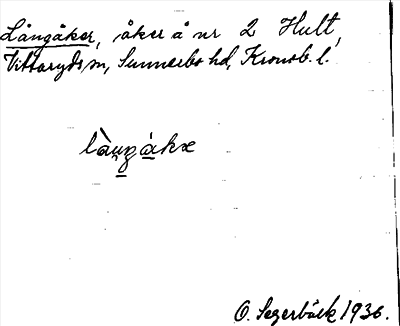 Långåker, åker å nr 2 Hult,
Vittaryds sn, Sunnerbo hd, Kronob. l.
O. Segerbäck 1936.